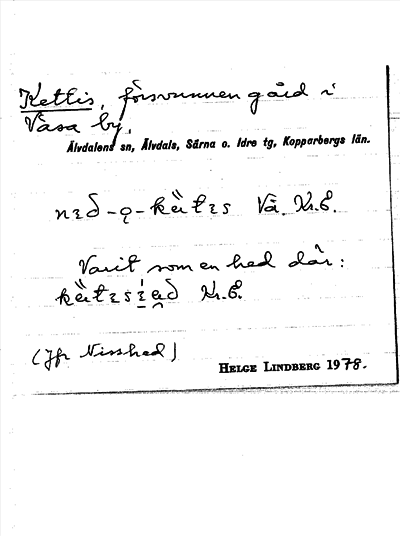 Kettis, försvunnen gård i
Våsa by.
Älvdalens sn, Älvdals, Särna o. Idre tg, Kopparbergs län.
Vå. Kr.E.
Varit som en hed där:
Kr.E.
(Jfr Nisshed)
HELGE LINDBERG 1978.